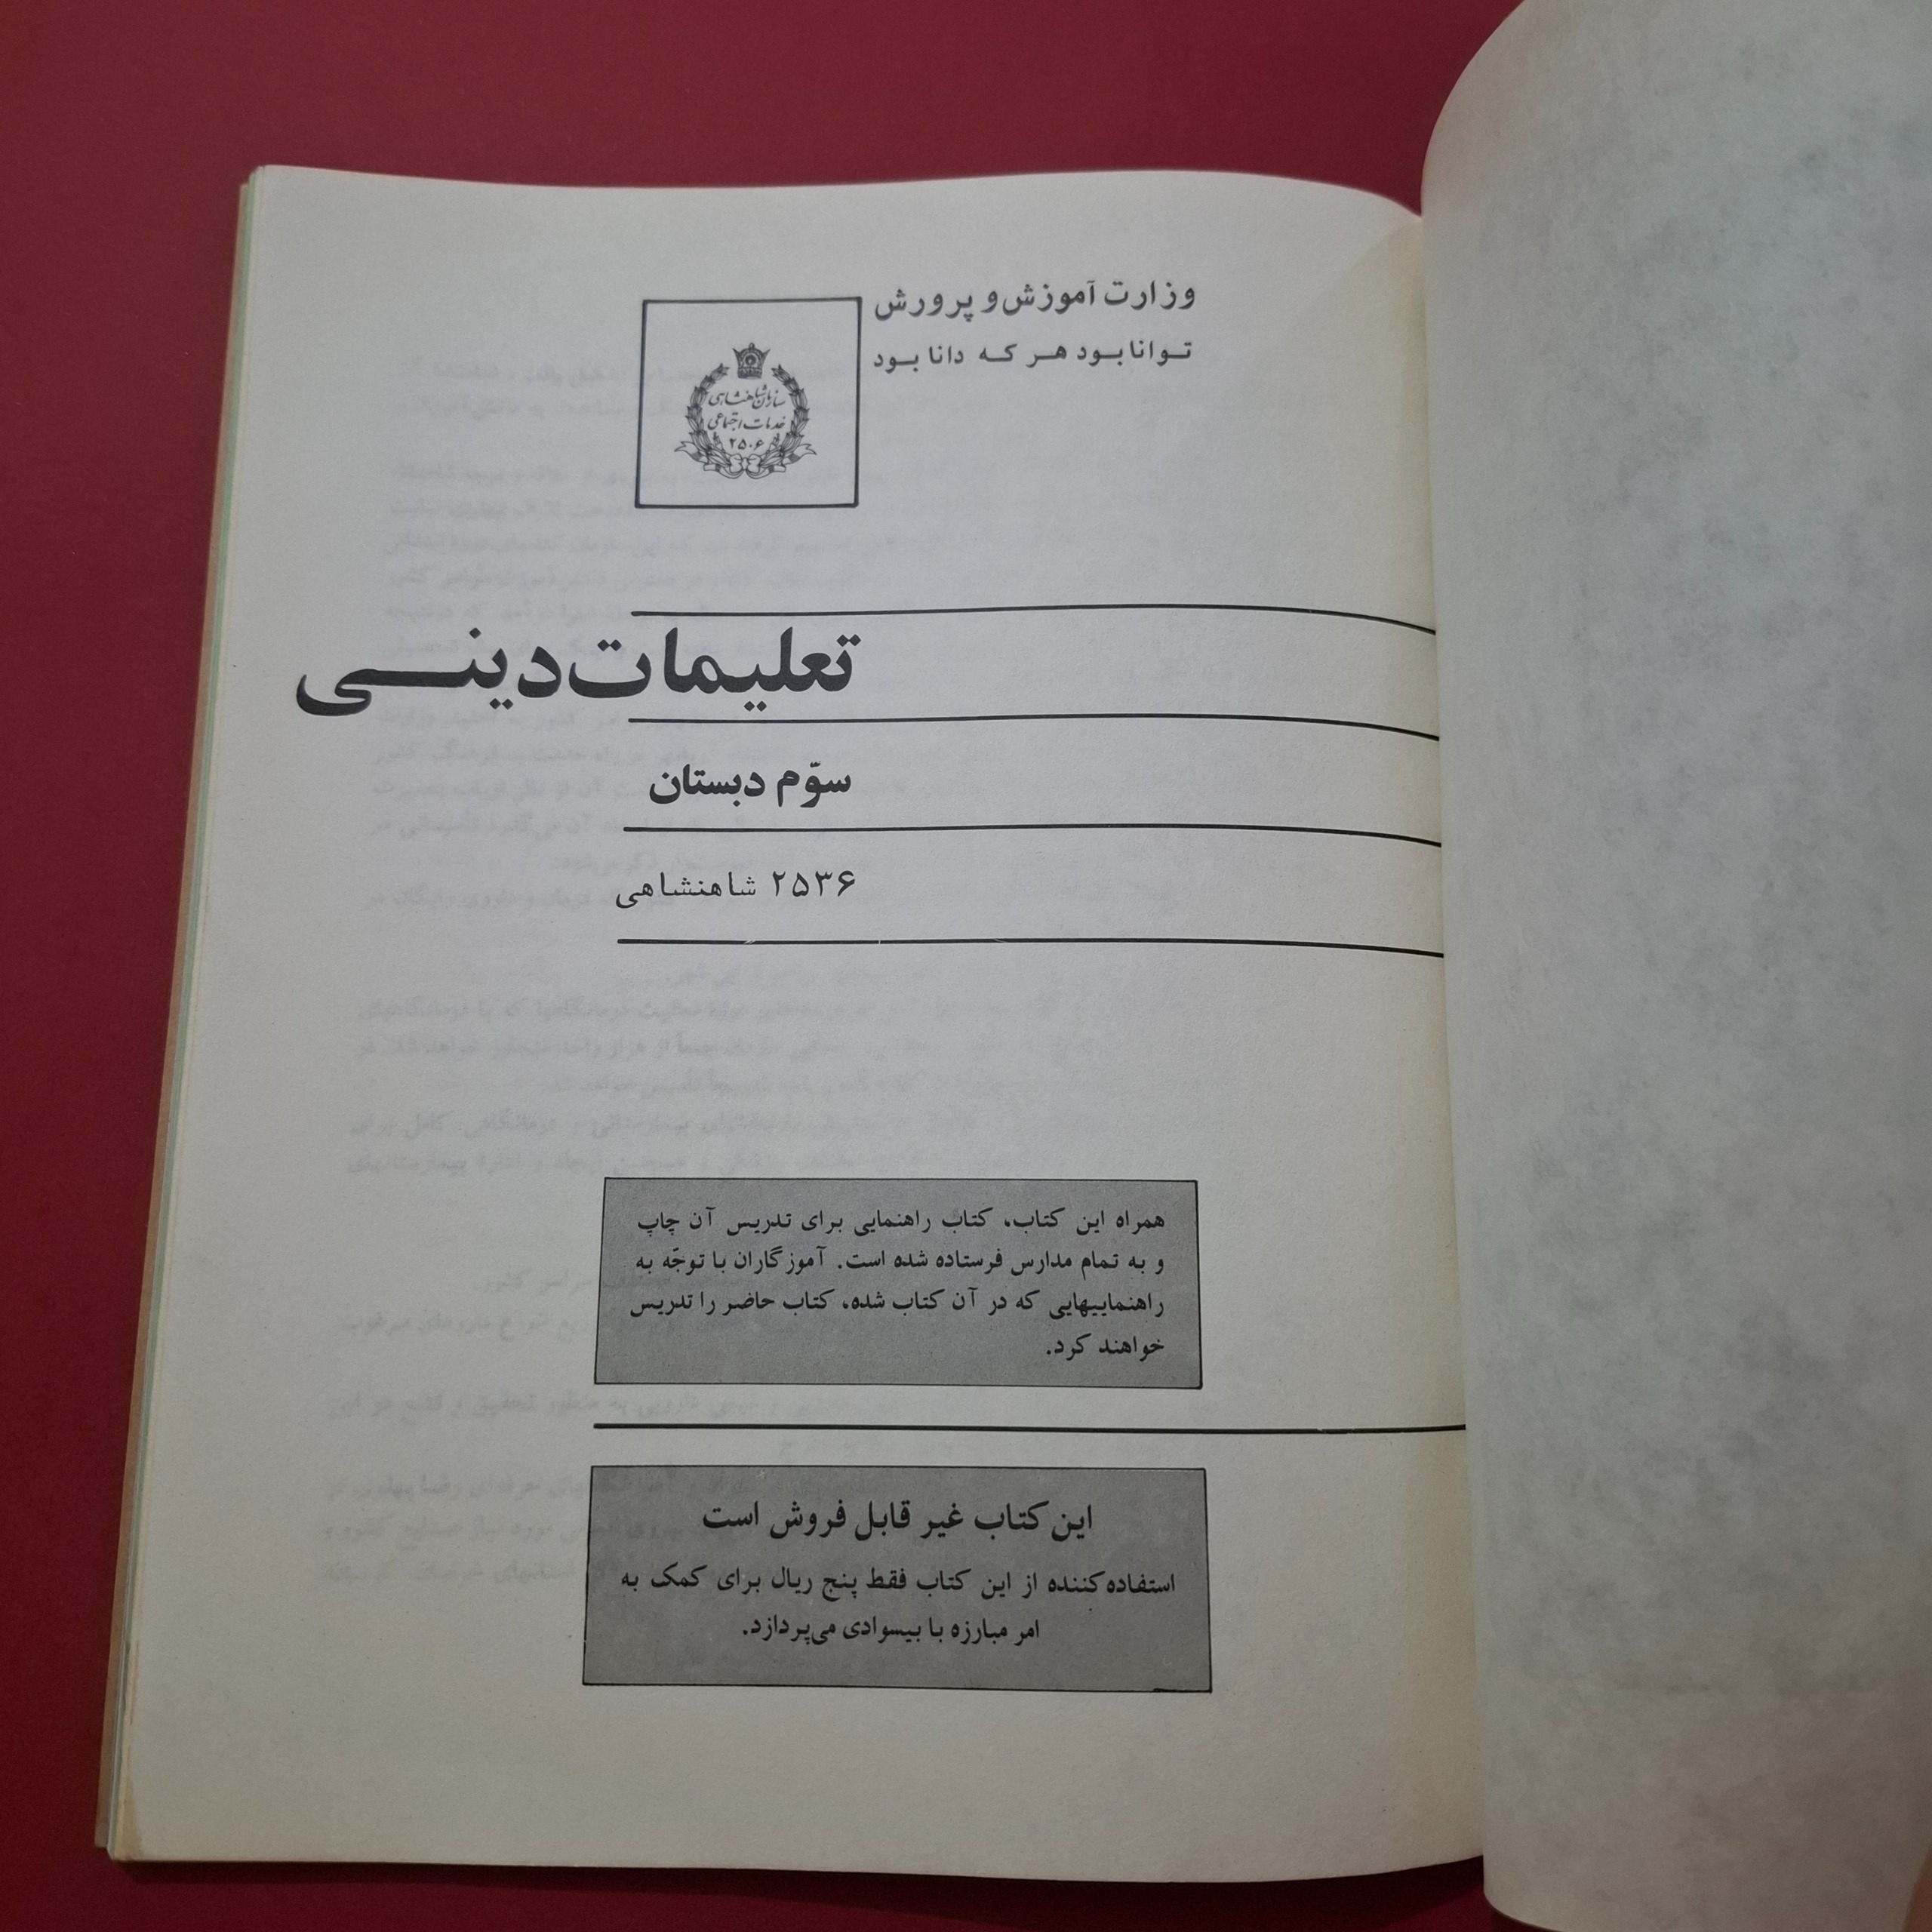 وزارت آموزش و پرورش
توانا بود هر که دانا بود
سازمان شاهنشاهی
خدمات اجتماعی
۲۵۰۶
تعلیمات دینی
سوّم دبستان
۲۵۳۶ شاهنشاهی
همراه این کتاب، کتاب راهنمایی برای تدریس آن چاپ
و به تمام مدارس فرستاده شده است. آموزگاران با توجّه به
راهنماییهایی که در آن کتاب شده، کتاب حاضر را تدریس
خواهند کرد.
این کتاب غیر قابل فروش است
استفاده‌کننده از این کتاب فقط پنج ریال برای کمک به
امر مبارزه با بیسوادی می‌پردازد.